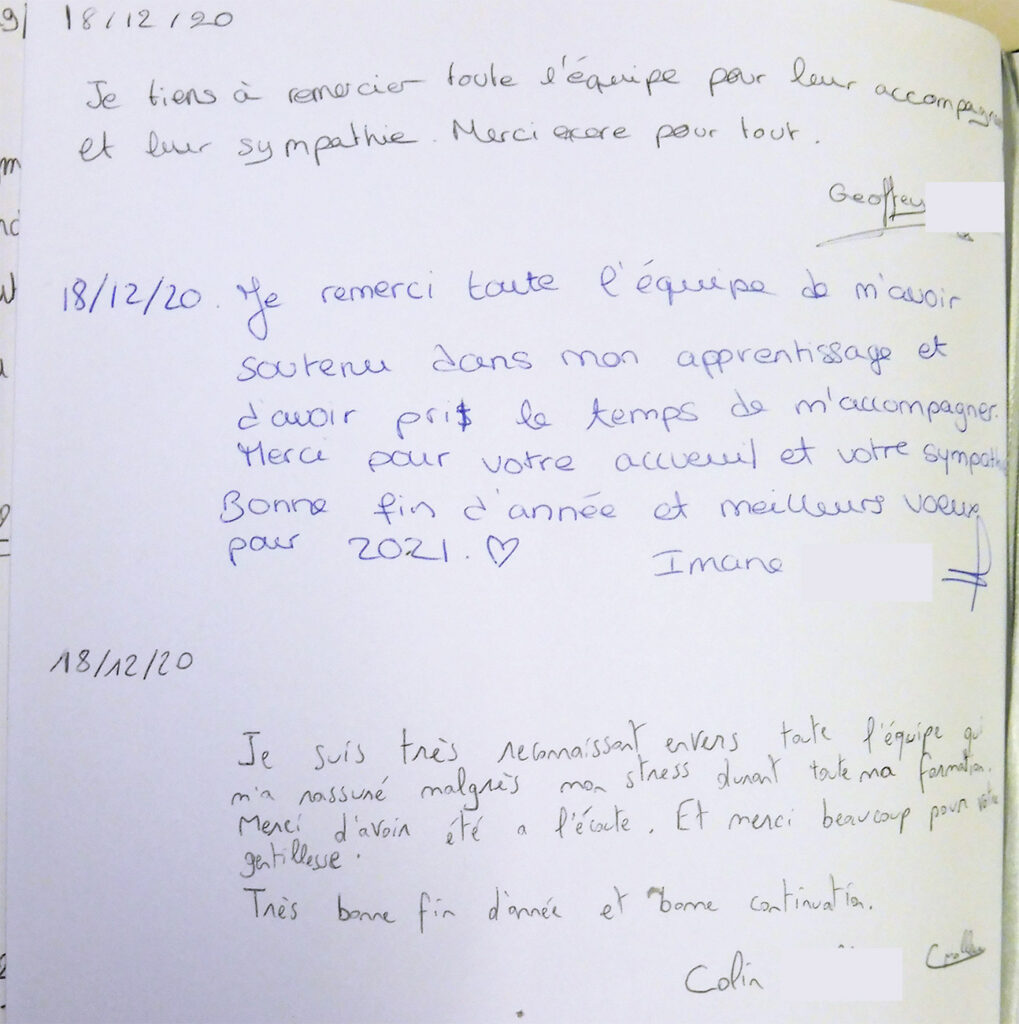 18/12/20
Je tiens à remercier toute l'équipe pour leur accompagne
et leur sympathie. Merci encore pour tout.
Geoffrey
18/12/20. Je remerci toute l'équipe de m'avoir
soutenu dans mon apprentissage et
d'avoir pris le temps de m'accompagner.
Merci pour votre accueuil et votre sympath
Bonne fin d'année et meilleurs voeux
pour 2021. ♡
Imane
18/12/20
Je suis très reconnaissant envers toute l'équipe qui
m'a rassuré malgrès mon stress durant toute ma formation.
Merci d'avoir été a l'écoute. Et merci beaucoup pour votre
gentillesse.
Très bonne fin d'année et bonne continuation.
Colin